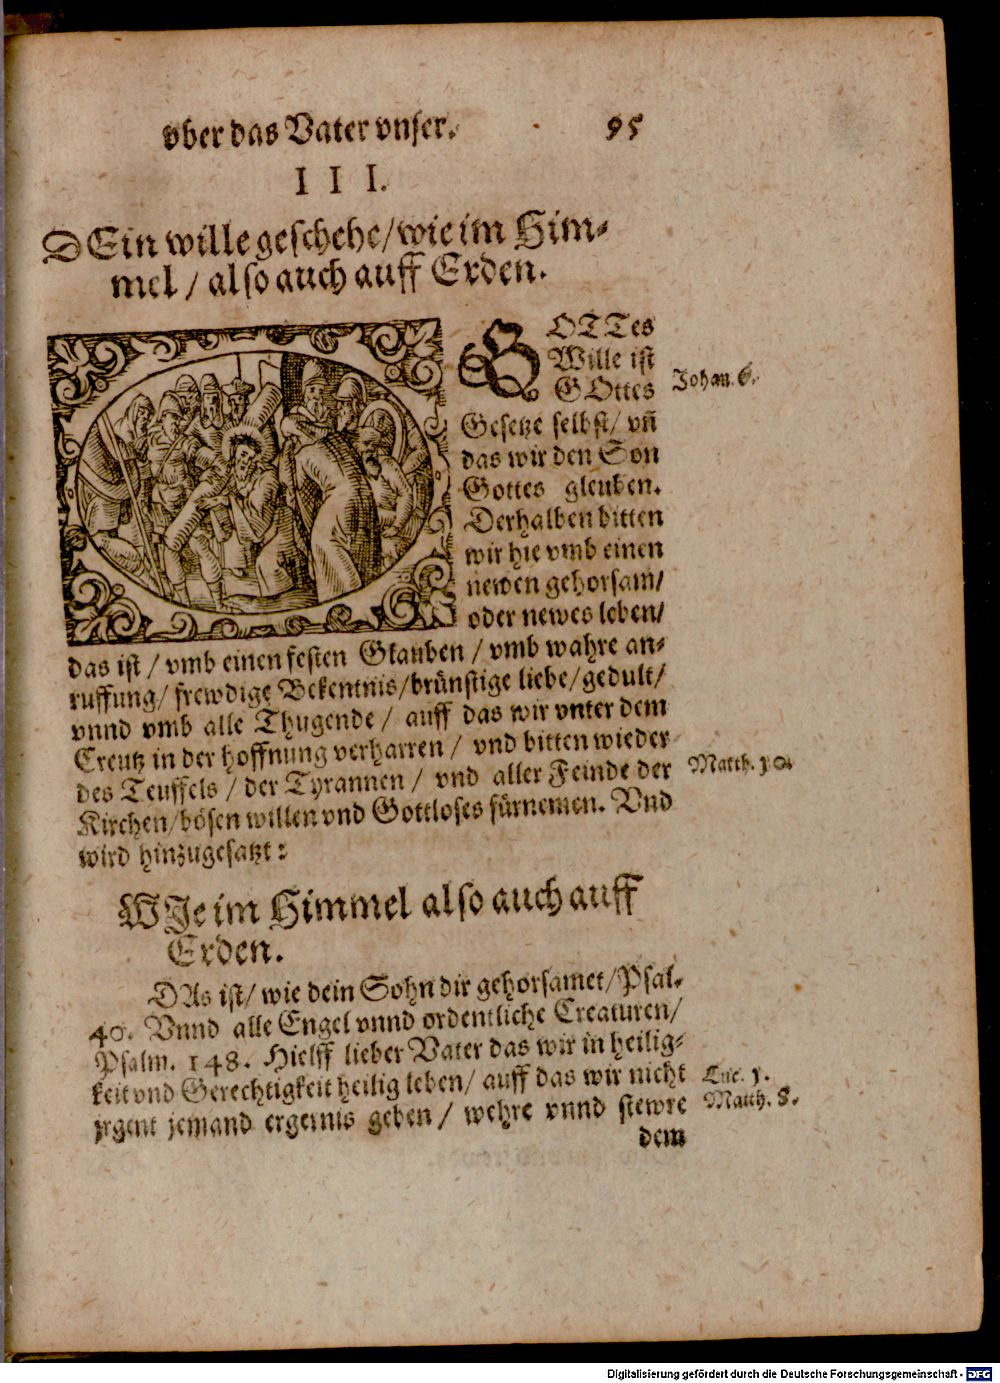 vber das Vater vnser. 95
I I I.
DEin wille geschehe/wie im Him-
mel / also auch auff Erden.
GOTTes
Wille ist
GOttes
Johan. 6.
Gesetze selbst/ vñ
das wir den Son
Gottes gleuben.
Derhalben bitten
wir hie vmb einen
newen gehorsam/
oder newes leben/
das ist / vmb einen festen Glauben / vmb wahre an-
ruffung/ frewdige Bekentnis/brünstige liebe/gedult/
vnnd vmb alle Thugende / auff das wir vnter dem
Creutz in der hoffnung verharren / vnd bitten wieder
des Teuffels / der Tyrannen / vnd aller Feinde der
Matth. 10.
Kirchen/bösen willen vnd Gottloses fürnemen. Vnd
wird hinzugesatzt:
WJe im Himmel also auch auff
Erden.
DAs ist/ wie dein Sohn dir gehorsamet/Psal.
40. Vnnd alle Engel vnnd ordentliche Creaturen/
Psalm. 148. Hielff lieber Vater das wir in heilig-
keit vnd Gerechtigkeit heilig leben/ auff das wir nicht
Luc. 1.
jrgent jemand ergernis geben / wehre vnnd stewre
Matth. 8.
dem
Digitalisierung gefördert durch die Deutsche Forschungsgemeinschaft - DFG